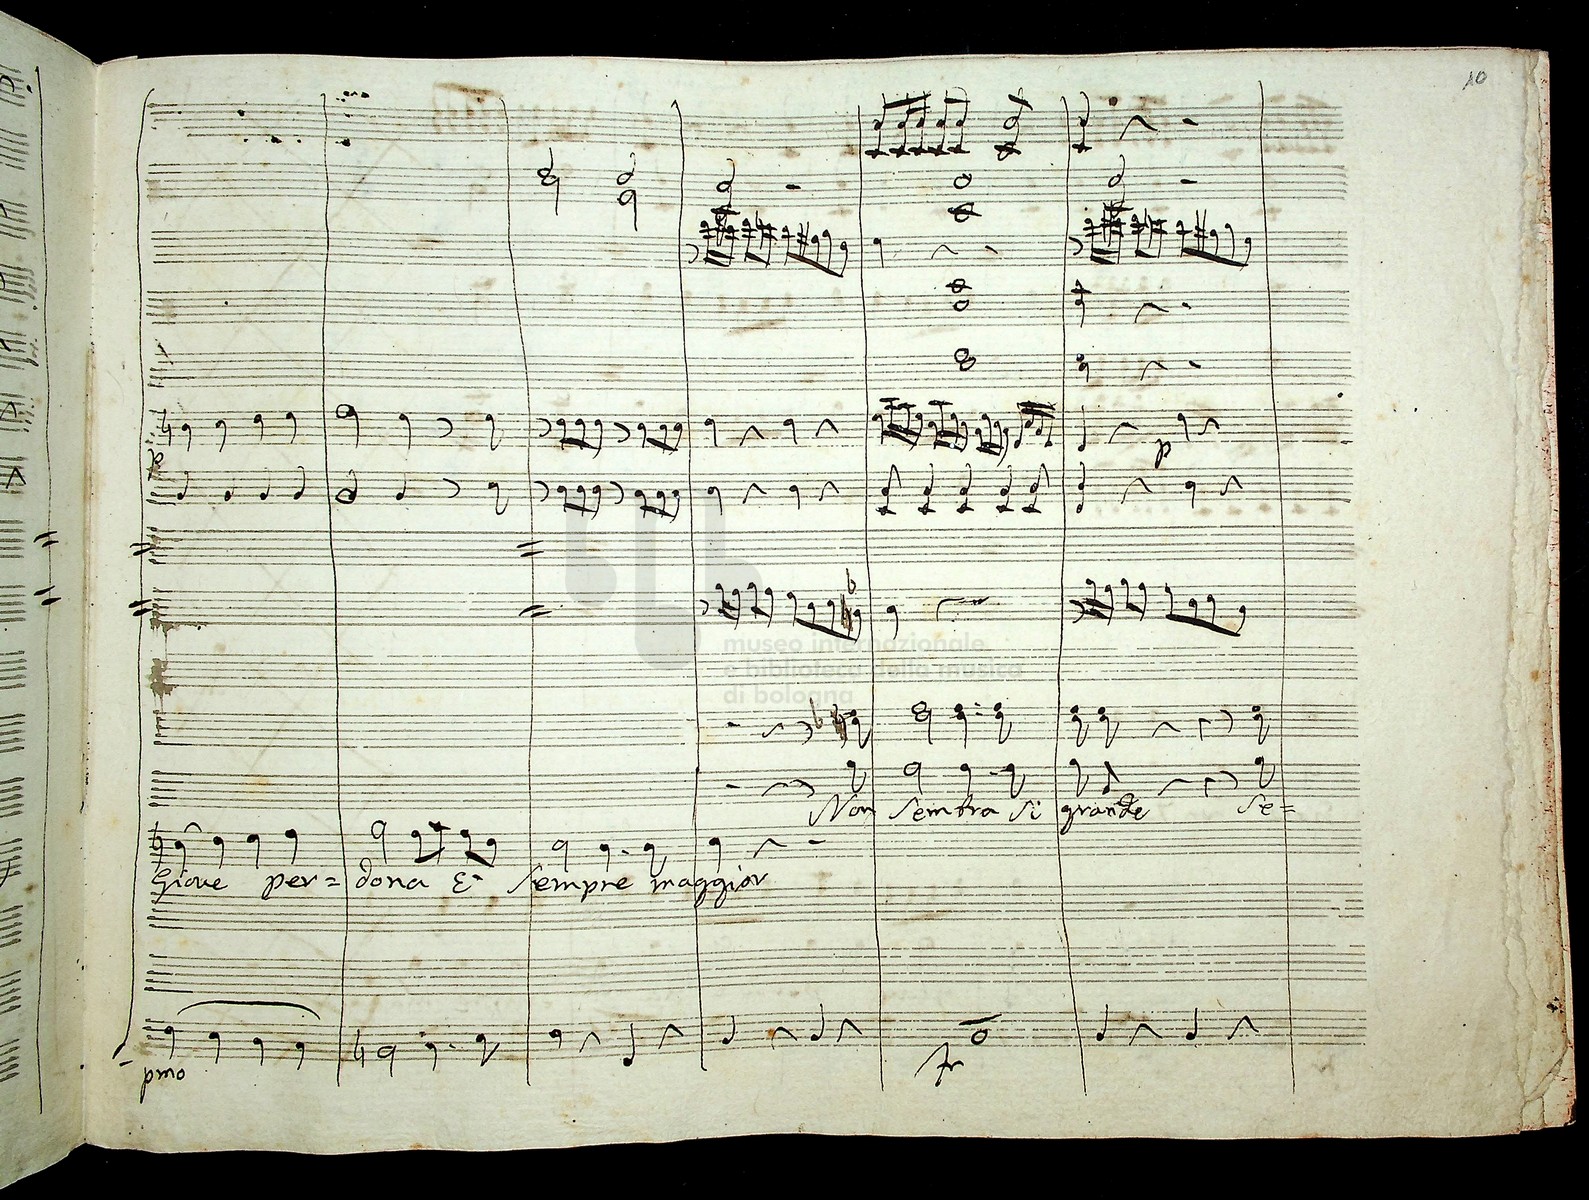 10
p
museo internazionale
e biblioteca della musica
di bologna
Non sembra si grande se=
Giove per= dona E' sempre maggior
pmo